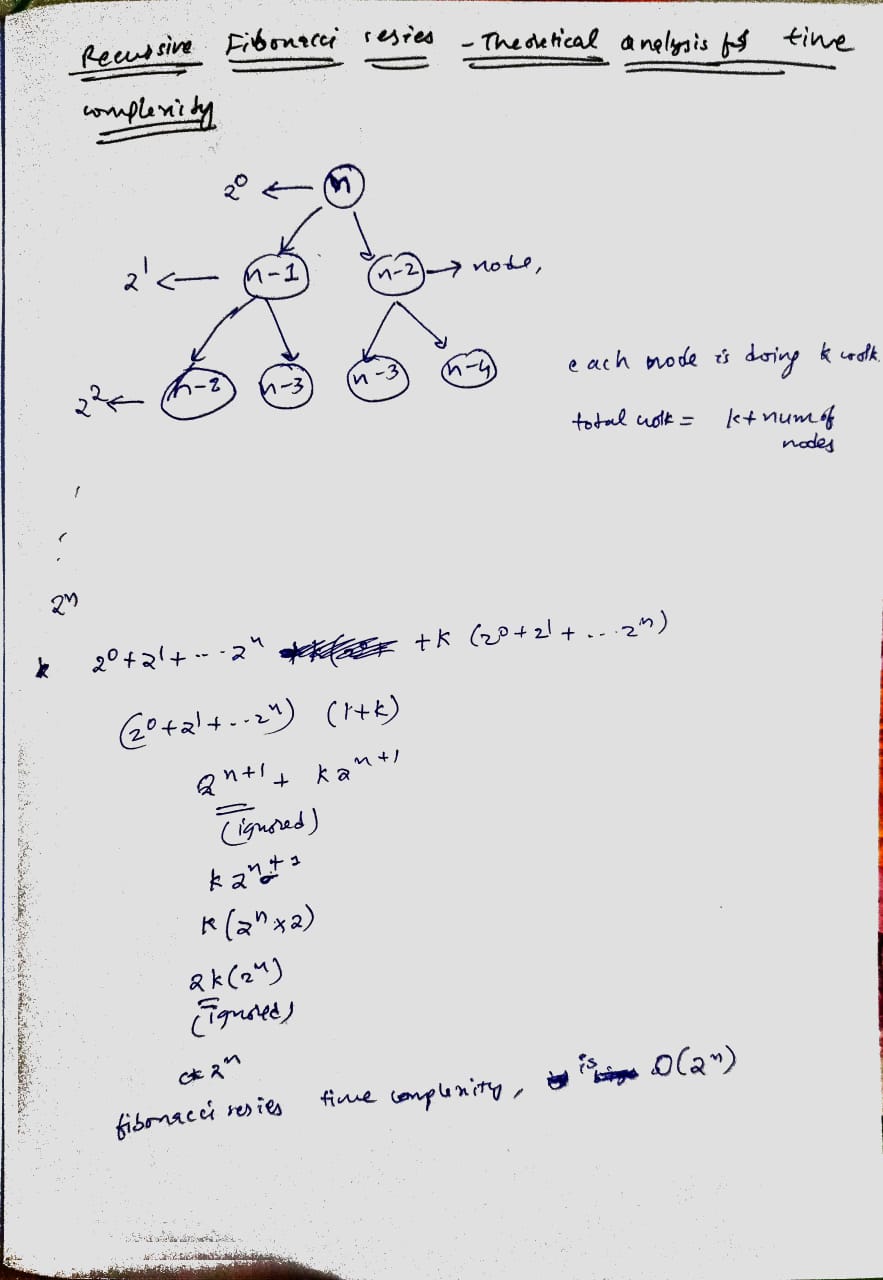 Recursive Fibonacci resies - Theoretical analysis for time
complexity
2⁰ ← n
2¹ ← n-1 n-2 → node,
2² ← n-2 n-3 n-3 n-4
each node is doing k work.
total work = k+num of
nodes
2ⁿ
k 2⁰+2¹+---2ⁿ +k (2⁰+2¹+...2ⁿ)
(2⁰+2¹+--2ⁿ) (1+k)
2ⁿ⁺¹ + k2ⁿ⁺¹
(ignored)
k2ⁿ⁺¹
k(2ⁿx2)
2k(2ⁿ)
(ignored)
2ⁿ
fibonacci resies time complexity, is O(2ⁿ)